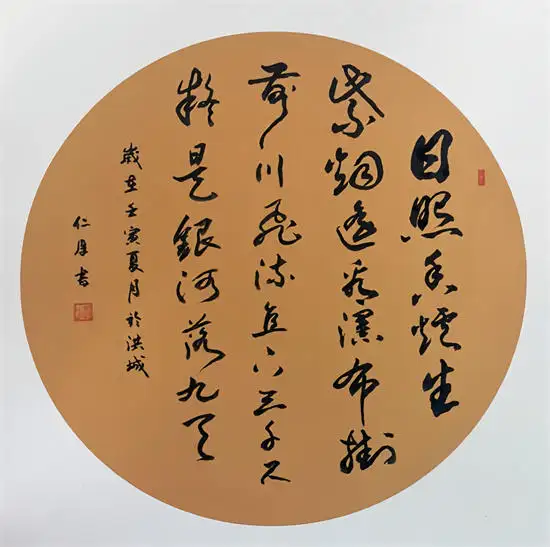 日照香炉生
紫烟遥看瀑布掛
前川飛流直下三千尺
疑是銀河落九天
歲在壬寅夏月於洪城
仁厚書